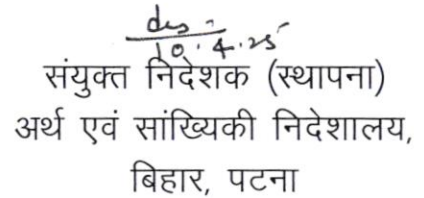 10.4.25
संयुक्त निदेशक (स्थापना)
अर्थ एवं सांख्यिकी निदेशालय,
बिहार, पटना